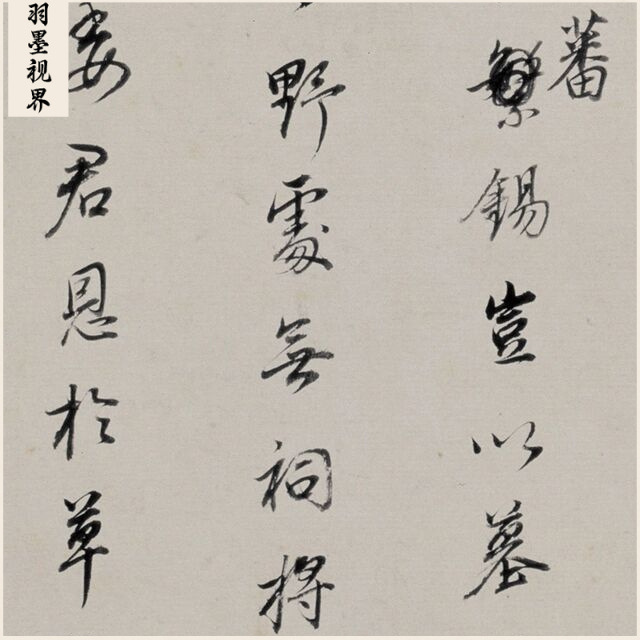 蕃
繁錫豈以墓
野處無祠將
委君恩於草
羽墨视界